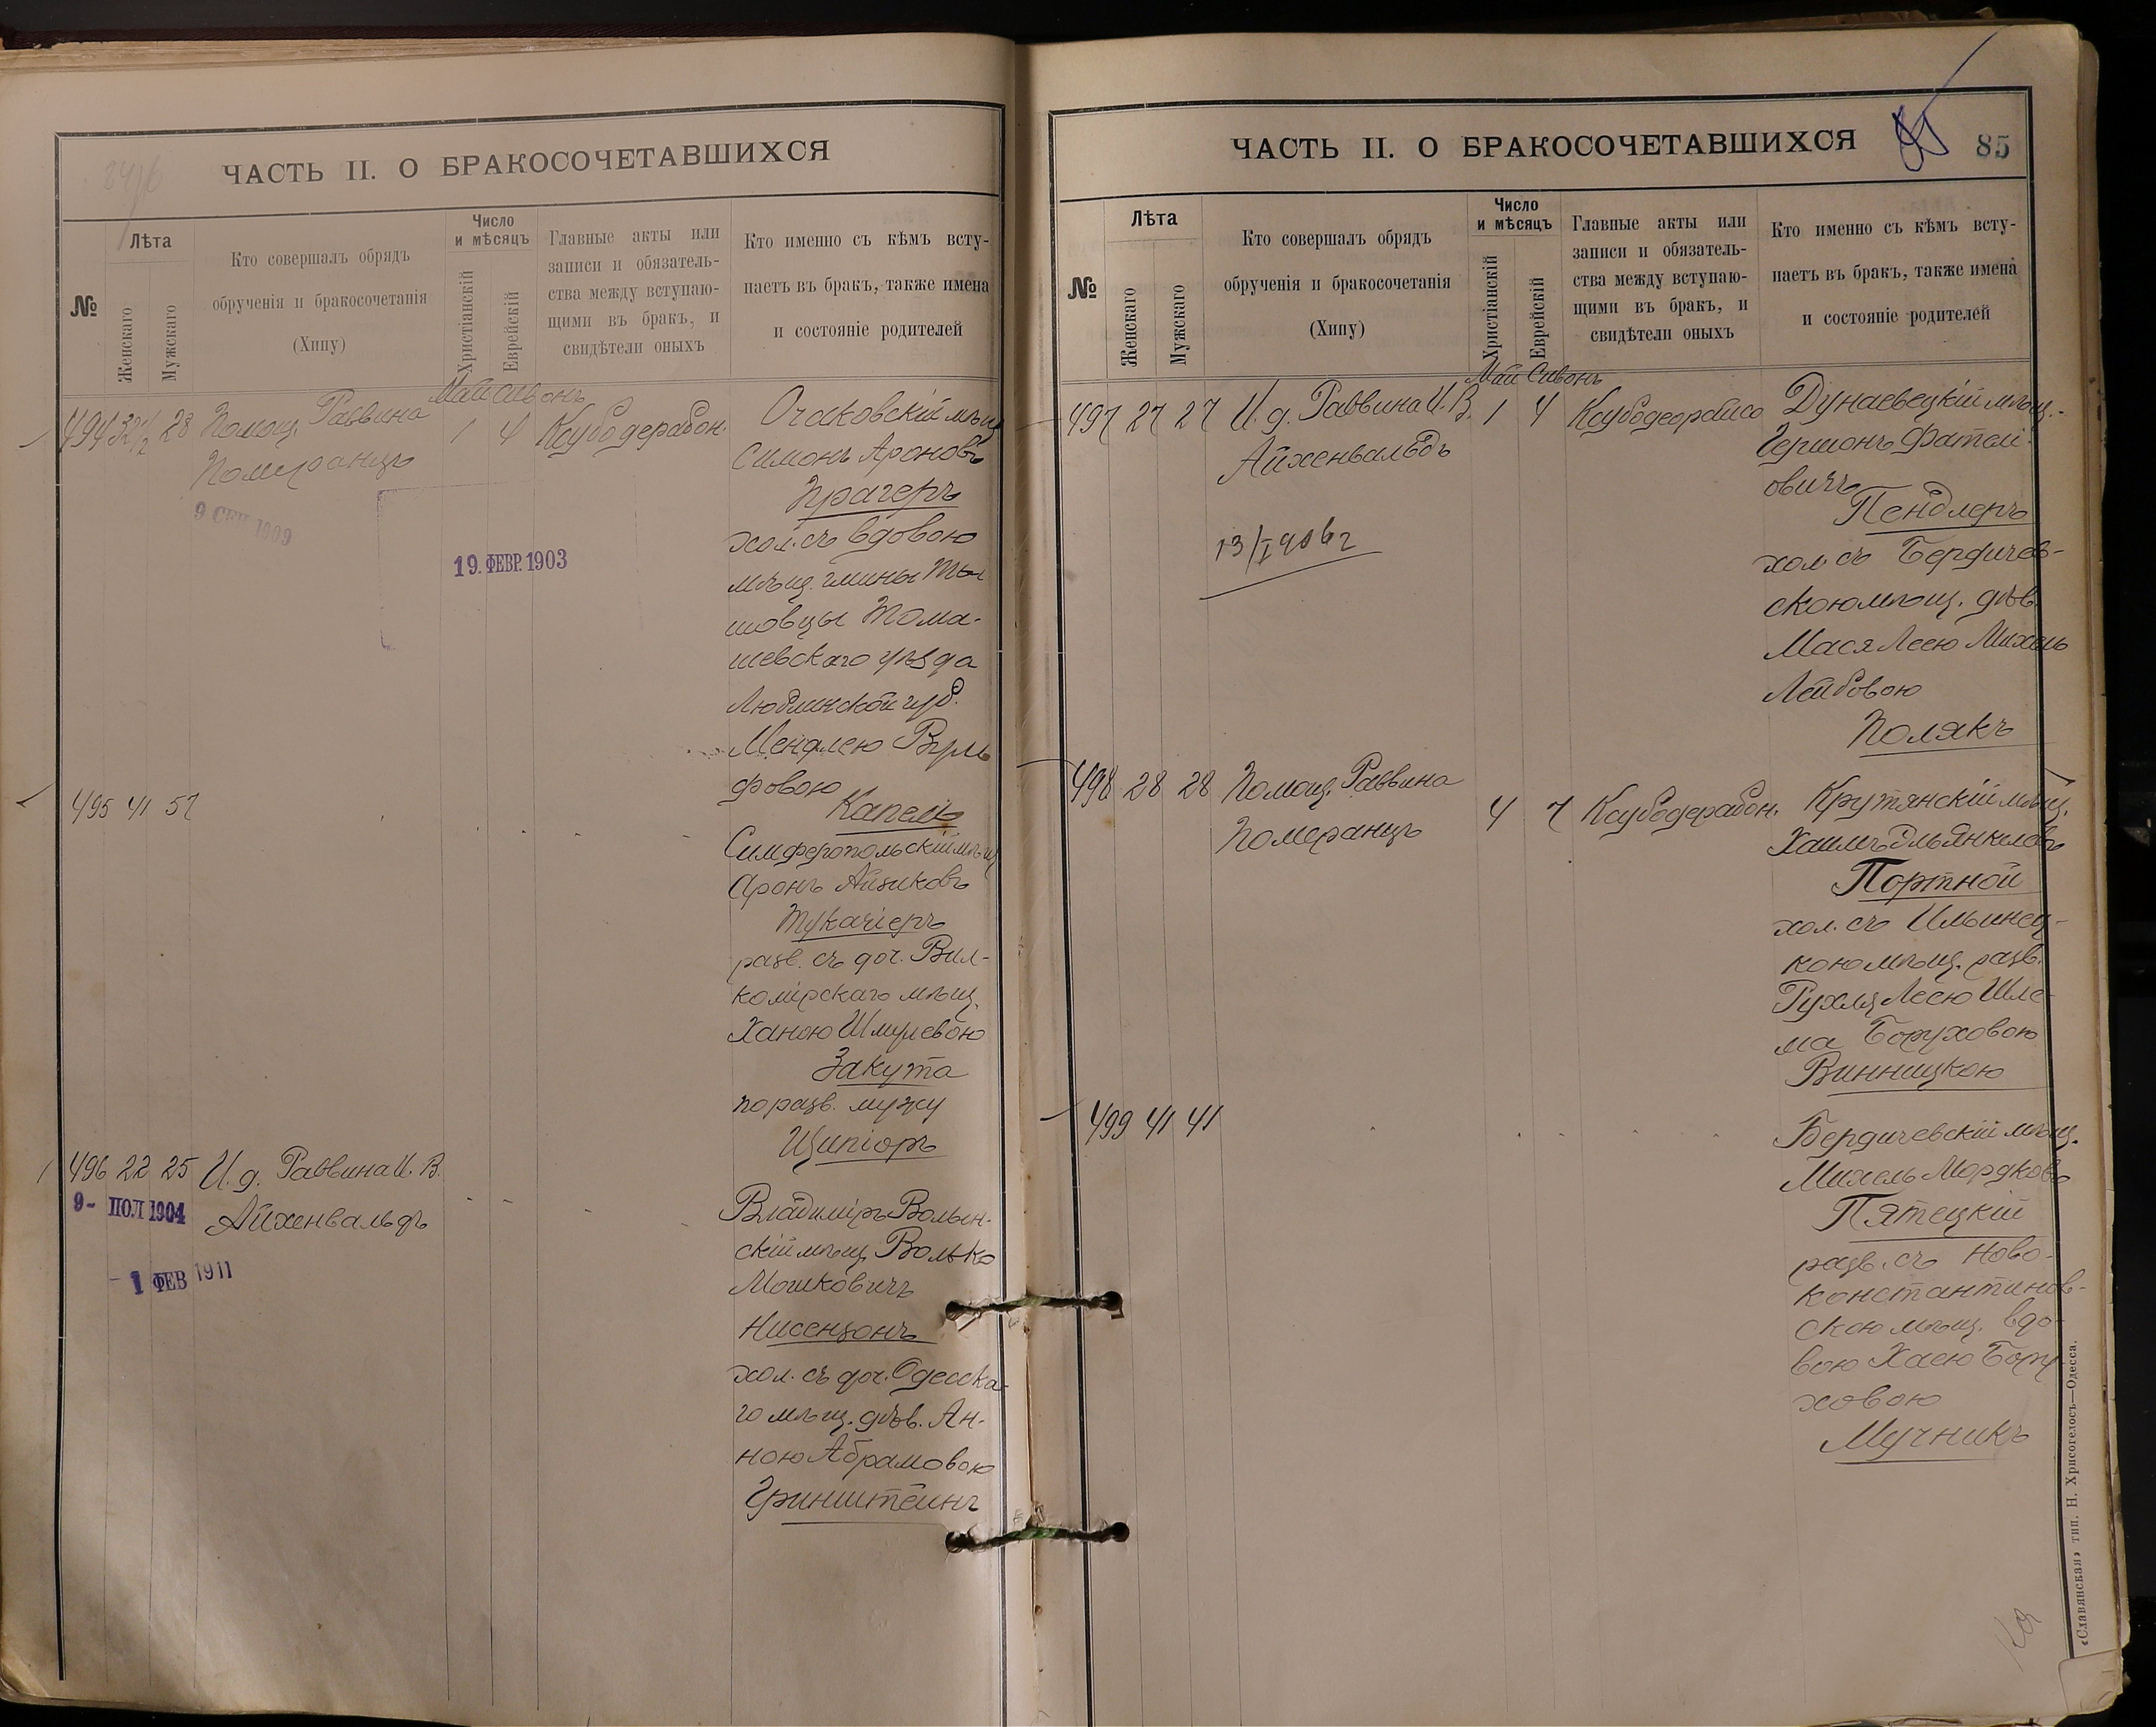 ЧАСТЬ II. О БРАКОСОЧЕТАВШИХСЯ
№
Лѣта
Женскаго
Мужскаго
Кто совершалъ обрядъ
обрученія и бракосочетанія
(Хипу)
Число
и мѣсяцъ
Христіанскій
Еврейскій
Главные акты или
записи и обязатель-
ства между вступаю-
щими въ бракъ, и
свидѣтели оныхъ
Кто именно съ кѣмъ всту-
паетъ въ бракъ, также имена
и состояніе родителей
Май Сивонъ
494 32 1/2 28 Помощ. Раввина 1 4
Померанцъ
9 СЕН 1909
19. ФЕВР. 1903
Очаковскій мѣщ
Симонъ Ароновъ
Прагеръ
хол. съ вдовою
мѣщ. гмины Ты
шовцы Тома-
шевскаго уѣзда
Люблинской губ.
Менфовою
Капель
495 41 57
Симферопольскій мѣщ
Аронъ Айзиковъ
Тукачіеръ
разв. съ доч. Вил-
комірскаго мѣщ.
Ханою Шмулевою
Закута
по разв. мужу
Ципіоръ
496 22 25 И. д. Раввина И. В.
Айхенвальдъ
9- ПОЛ 1904
- 1 ФЕВ 1911
Владиміръ Волын-
скій мѣщ. Волько
Мошковичъ
Нисензонъ
хол. съ доч. Одесска-
го мѣщ. дѣв. Ан-
ною Абрамовою
Гринштейнъ
ЧАСТЬ II. О БРАКОСОЧЕТАВШИХСЯ
85
№
Лѣта
Женскаго
Мужскаго
Кто совершалъ обрядъ
обрученія и бракосочетанія
(Хипу)
Число
и мѣсяцъ
Христіанскій
Еврейскій
Главные акты или
записи и обязатель-
ства между вступаю-
щими въ бракъ, и
свидѣтели оныхъ
Кто именно съ кѣмъ всту-
паетъ въ бракъ, также имена
и состояніе родителей
Май Сивонъ
497 27 27 И. д. Раввина И. В. 1 4
Айхенвальдъ
13/I 906 г
Дунаевецкій мѣщ.
овичъ
Пендлеръ
хол. съ Бердичев-
скою мѣщ. дѣв.
Мася Леею Михель
Лейбовою
Полякъ
498 28 28 Помощ. Раввина 4 7
Померанцъ
Крутянскій мѣщ.
Портной
хол. съ Ильинец-
кою мѣщ. разв.
Рухля Леею Шле-
ма Боруховою
Винницкою
499 41 41
Бердичевскій мѣщ.
Михель Мордковъ
Пятецкій
разв. съ Ново-
константинов-
скою мѣщ. вдо-
вою Хаею Бору
ховою
Мучникъ
«Славянская» тип. Н. Хрисогелосъ—Одесса.